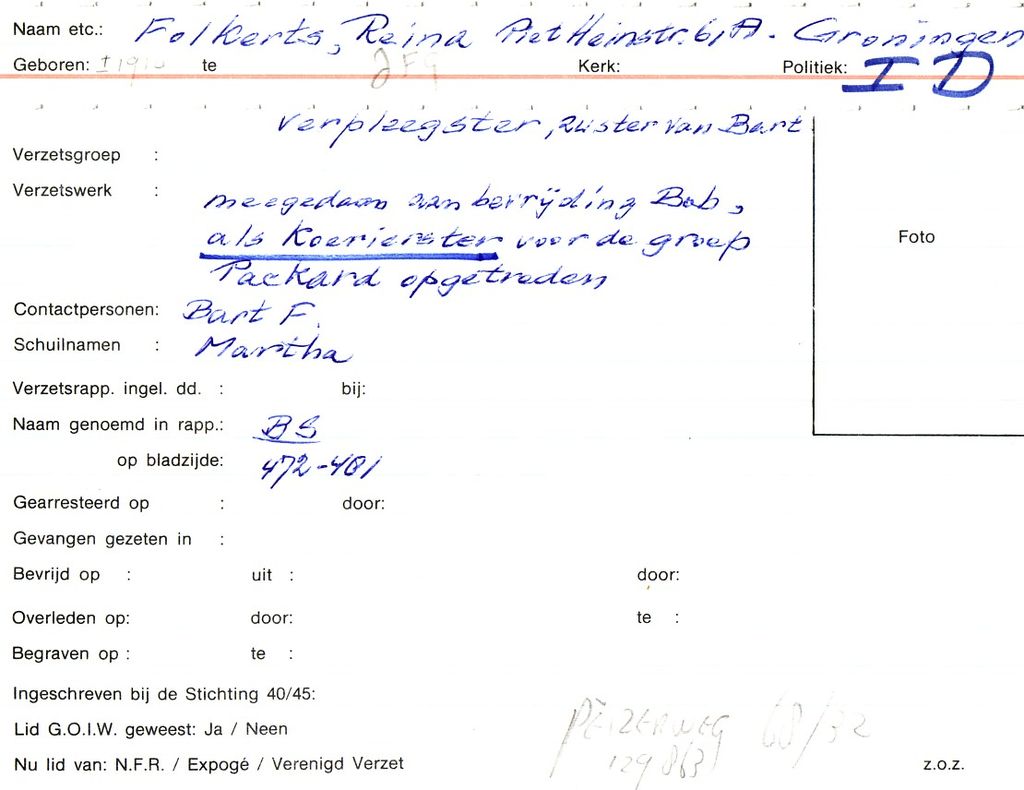 Naam etc.: Folkerts, Reina Piet Heinstr. 6, A. Groningen
Geboren: te Kerk: Politiek: ID
verpleegster, zuster van Bart
Verzetsgroep :
Verzetswerk : meegedaan aan bevrijding Bob,
als Koerierster voor de groep
Packard opgetreden
Foto
Contactpersonen: Bart F.
Schuilnamen : Martha
Verzetsrapp. ingel. dd. : bij:
Naam genoemd in rapp.: BS
op bladzijde: 472-481
Gearresteerd op : door:
Gevangen gezeten in :
Bevrijd op : uit : door:
Overleden op: door: te :
Begraven op : te :
Ingeschreven bij de Stichting 40/45:
Lid G.O.I.W. geweest: Ja / Neen
Nu lid van: N.F.R. / Expogé / Verenigd Verzet
PEIZERWEG 68/32
z.o.z.